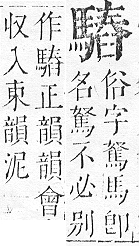 䮞
俗字駑馬即
名駑不必别
作䮞正韻韻會
收入東韻泥